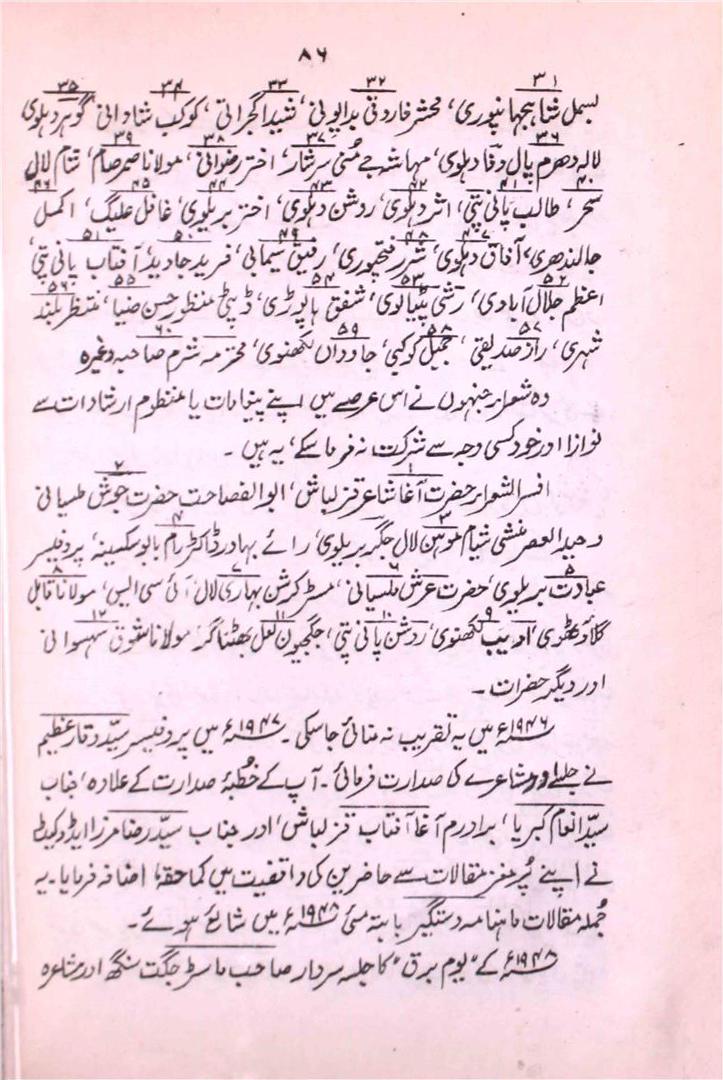 ۸۶
۳۱ ۳۲ ۳۳ ۳۴ ۳۵
بسمل شاہجہانپوری، محشر فاروقی بدایونی، شیدا گجراتی، کوکب شادانی، گوہر دہلوی
۳۶ ۳۷ ۳۸ ۳۹
لالہ دھرم پال وفا دہلوی، مہاشہ جے مُنی سرشار، اختر رضوانی، مولانا صمصام، شام لال
۴۰ ۴۱ ۴۲ ۴۳ ۴۴ ۴۵ ۴۶
سحر، طالب پانی پتی، اثر دہلوی، روشن دہلوی، اختر بریلوی، غافل علیگ، اکمل
۴۷ ۴۸ ۴۹ ۵۰ ۵۱
جالندھری، آفاق دہلوی، شرر فتحپوری، رفیق سیمابی، فرید جاوید، آفتاب پانی پتی،
۵۲ ۵۳ ۵۴ ۵۵ ۵۶
اعظم جلال آبادی، رشی پٹیالوی، شفق ہاپوڑی، ڈپٹی منظور حسن ضیا، منتظر بلند
۵۷ ۵۸ ۵۹ ۶۰
شہری، راز صدیقی، جمیل کوکبی، جاوداں لکھنوی، محترمہ شرم صاحبہ وغیرہ
وہ شعراء جنہوں نے اس عرصے میں اپنے پیغامات یا منظوم ارشادات سے
نوازا اور خود کسی وجہ سے شرکت نہ فرما سکے، یہ ہیں۔
۱ ۲
افسر الشعراء حضرت آغا شاعر قزلباش، ابوالفصاحت حضرت جوش ملسیانی
۳ ۴
وحید العصر منشی شیام موہن لال جگر بریلوی، رائے بہادر ڈاکٹر رام بابو سکسینہ، پروفیسر
۵ ۶ ۷ ۸
عبادت بریلوی، حضرت عرش ملسیانی، مسٹر کرشن بہاری لال آئی سی ایس، مولانا قابل
۹ ۱۰ ۱۱ ۱۲
گلاؤٹھوی، ادیب لکھنوی، روشن پانی پتی، جگجیون لعل بھٹناگر، مولانا شفوق سہسوانی
اور دیگر حضرات۔
۱۹۴۶ء میں یہ تقریب نہ منائی جا سکی۔ ۱۹۴۷ء میں پروفیسر سیّد وقار عظیم
نے جلسے اور مشاعرے کی صدارت فرمائی۔ آپ کے خطبۂ صدارت کے علاوہ، جناب
سیّد انعام کبریا، برادرم آغا آفتاب قزلباش، اور جناب سیّد رضا مرزا ایڈوکیٹ
نے اپنے پُر مغز مقالات سے حاضرین کی واقفیت میں کما حقہٗ اضافہ فرمایا۔ یہ
جُملہ مقالات ماہنامہ دستگیر بابتہ مئی ۱۹۴۸ء میں شائع ہوئے۔
۱۹۴۸ء کے "یوم برق" کا جلسہ سردار صاحب ماسٹر جگت سنگھ اور مشاعرہ